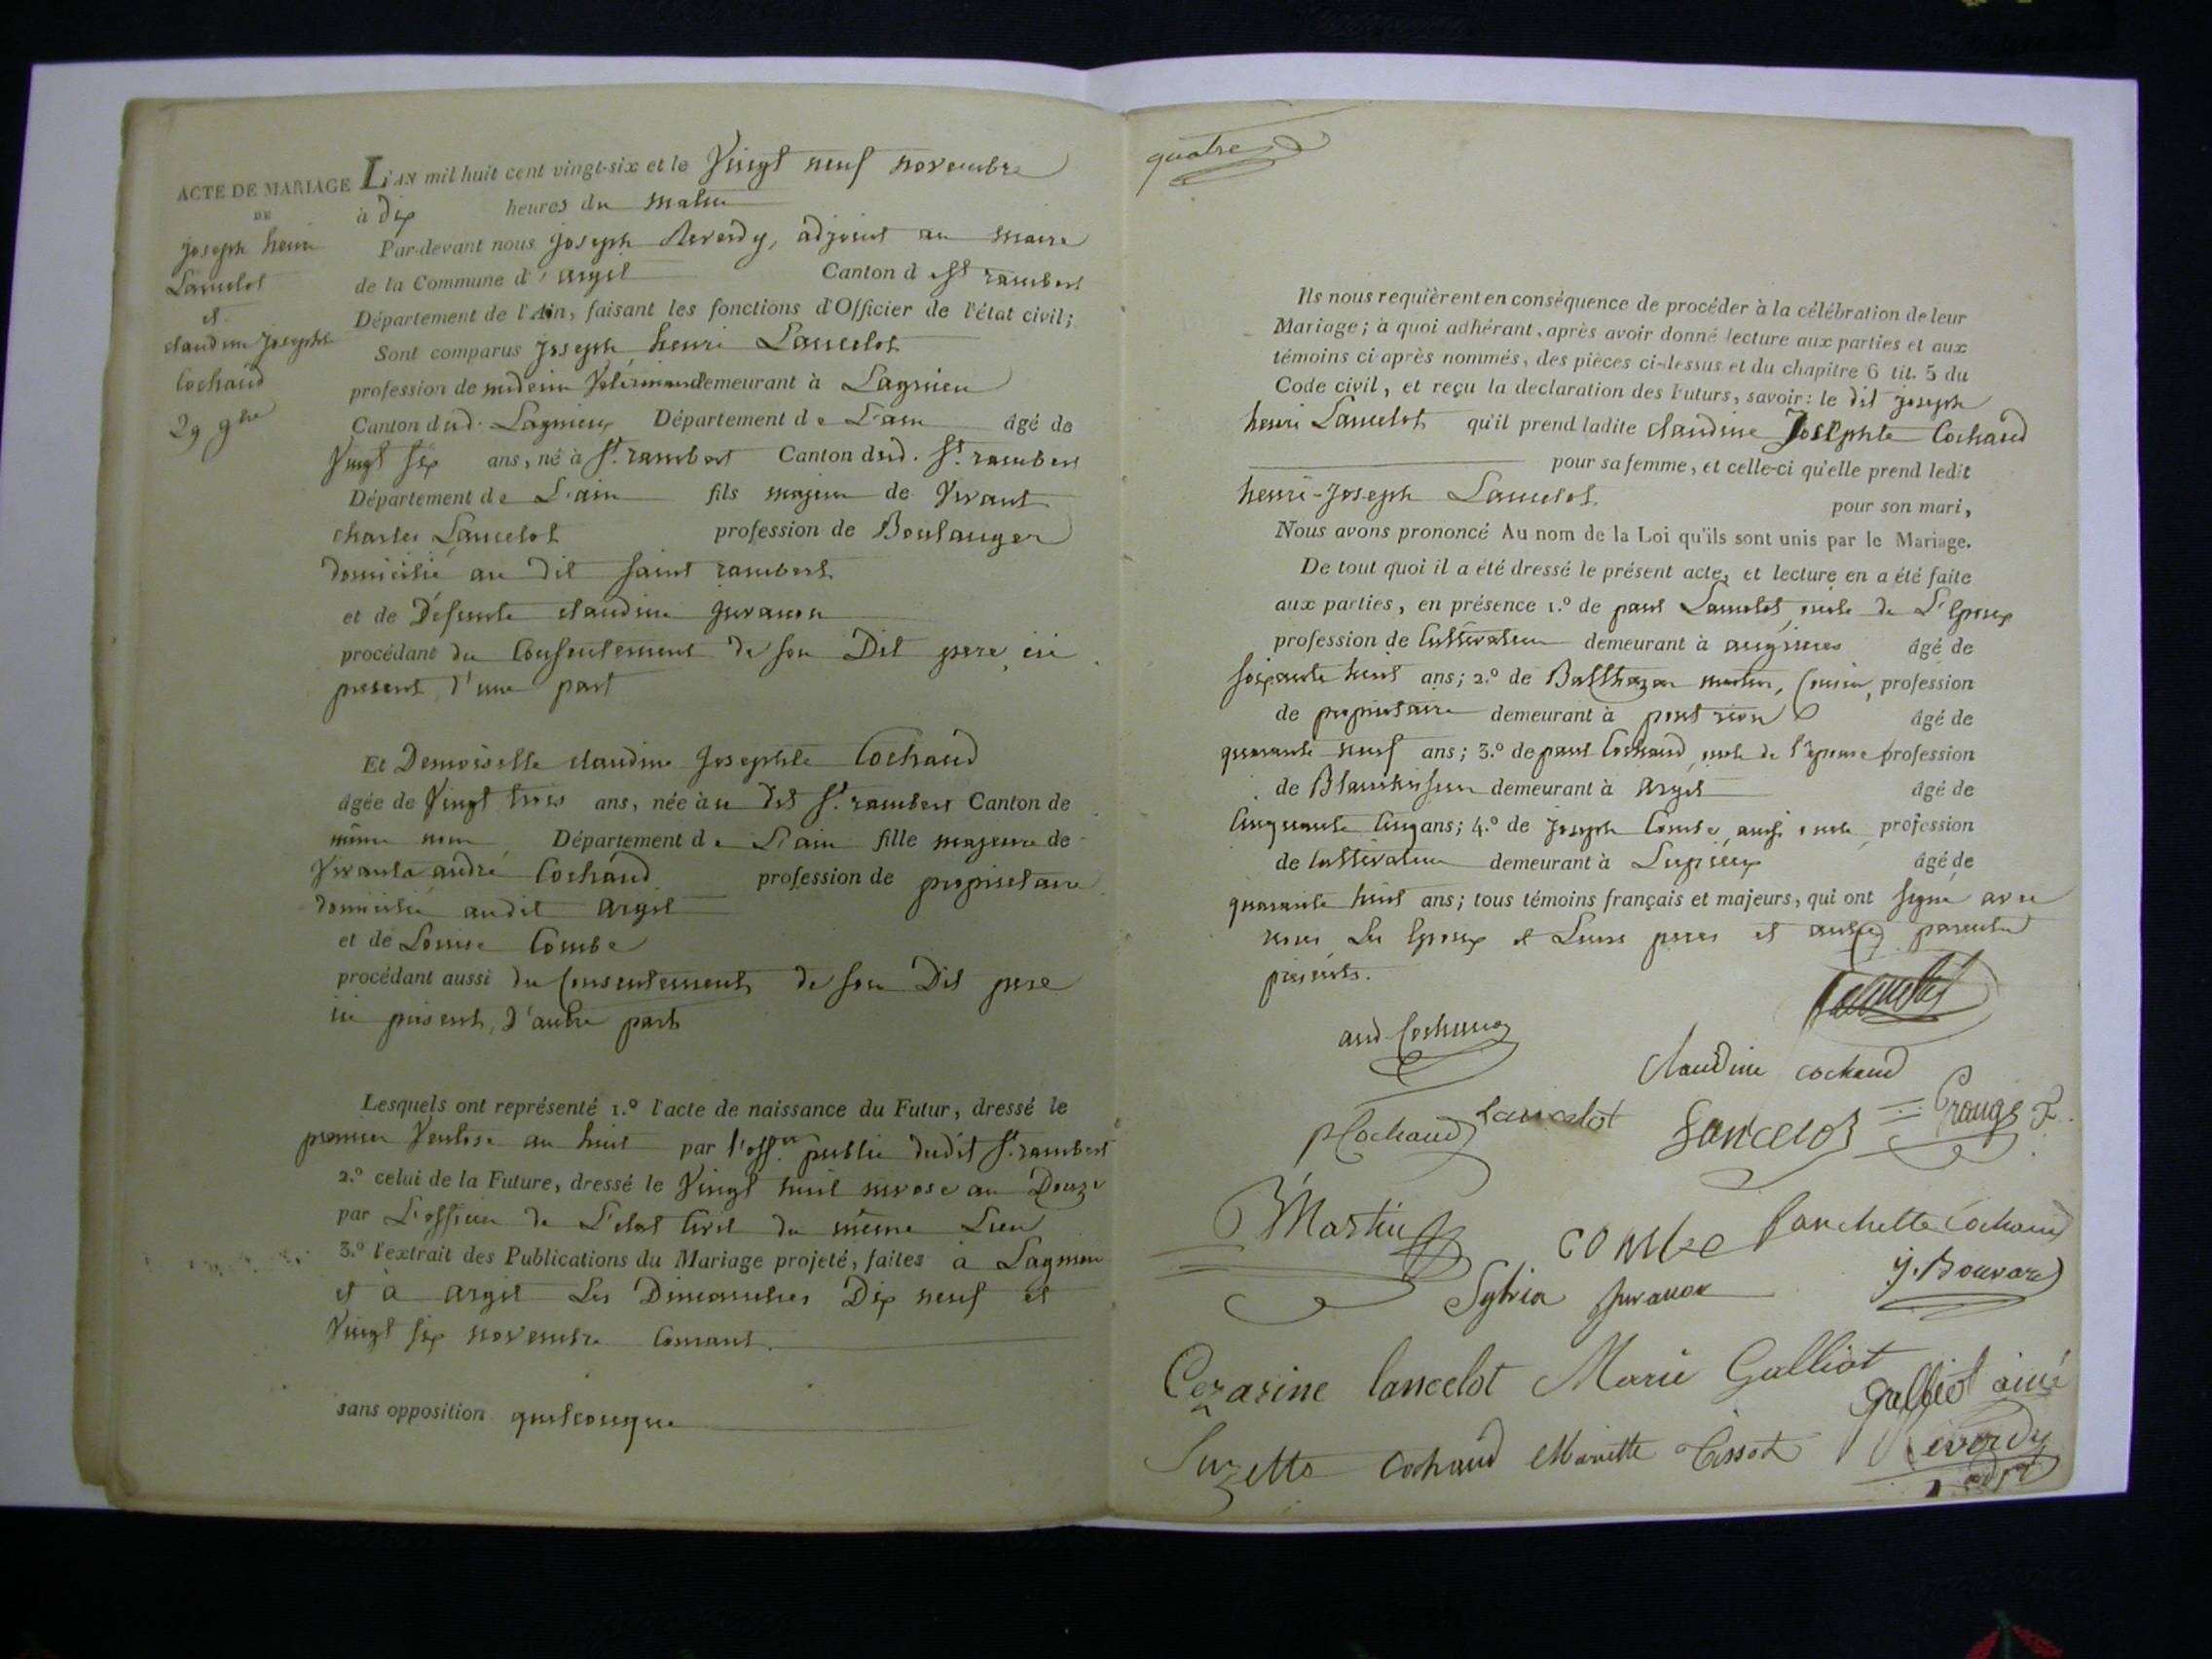 ACTE DE MARIAGE
DE
joseph henri
Lancelot
et
claudine josephte
Cochaud
29 9bre
L'AN mil huit cent vingt-six et le Vingt neuf novembre
à dix heures du matin
Par-devant nous joseph Reverdy, adjoint au maire
de la Commune d'argit Canton d St rambert
Département de l'Ain, faisant les fonctions d'Officier de l'état civil;
Sont comparus joseph henri Lancelot
profession de medecin Vétérinaire demeurant à Lagnieu
Canton dud. Lagnieux Département de L'ain âgé de
Vingt six ans, né à St. rambert Canton dud. St. rambert
Département de L'ain fils majeur de Vivant
charles Lancelot profession de Boulanger
domicilié au dit saint rambert
et de Défunte claudine juvanon
procédant du Consentement de son Dit pere ici
present, d'une part
Et Demoiselle claudine josephte Cochaud
âgée de Vingt trois ans, née au dit St. rambert Canton de
même nom Département de L'ain fille majeure de
Vivant andré Cochaud profession de proprietaire
domicilié audit argit
et de Louise Combe
procédant aussi du Consentement de son Dit pere
ici present, d'autre part
Lesquels ont représenté 1.º l'acte de naissance du Futur, dressé le
premier Ventose an huit par l'offer public dudit St. rambert
2.º celui de la Future, dressé le Vingt huit nivose an Douze
par L'officier de L'etat Civil du même Lieu
3.º l'extrait des Publications du Mariage projeté, faites à Lagnieu
et à argit Les Dimanches Dix neuf et
Vingt six novembre Courant.
sans opposition quelconque
quatre
Ils nous requièrent en conséquence de procéder à la célébration de leur
Mariage; à quoi adhérant, après avoir donné lecture aux parties et aux
témoins ci-après nommés, des pièces ci-dessus et du chapitre 6 tit. 5 du
Code civil, et reçu la declaration des Futurs, savoir: le dit joseph
henri Lancelot qu'il prend ladite claudine Josephte Cochaud
pour sa femme, et celle-ci qu'elle prend ledit
henri-joseph Lancelot pour son mari,
Nous avons prononcé Au nom de la Loi qu'ils sont unis par le Mariage.
De tout quoi il a été dressé le présent acte, et lecture en a été faite
aux parties, en présence 1.º de paul Lancelot, oncle de L'Epoux
profession de Cultivateur demeurant à âgé de
soixante huit ans; 2.º de Balthazar martin, Cousin, profession
de proprietaire demeurant à âgé de
quarante neuf ans; 3.º de paul Cochaud, oncle de l'épouse profession
de Blanchisseur demeurant à Argit âgé de
Cinquante Cinq ans; 4.º de joseph Combe, aussi oncle, profession
de Cultivateur demeurant à Lupieux âgé de
quarante huit ans; tous témoins français et majeurs, qui ont signé avec
nous Les Epoux et Leurs peres et autres parents
présents.
Lancelot
and Cochaud
Claudine cochaud
pCochaud Lancelot Lancelot
BMartin combe fanchette Cochaud
juvanon j. Bouvard
Cezarine lancelot Marie Galliot
Galliot ainé
Suzette Cochaud Mariette Tissot Reverdy
adjt